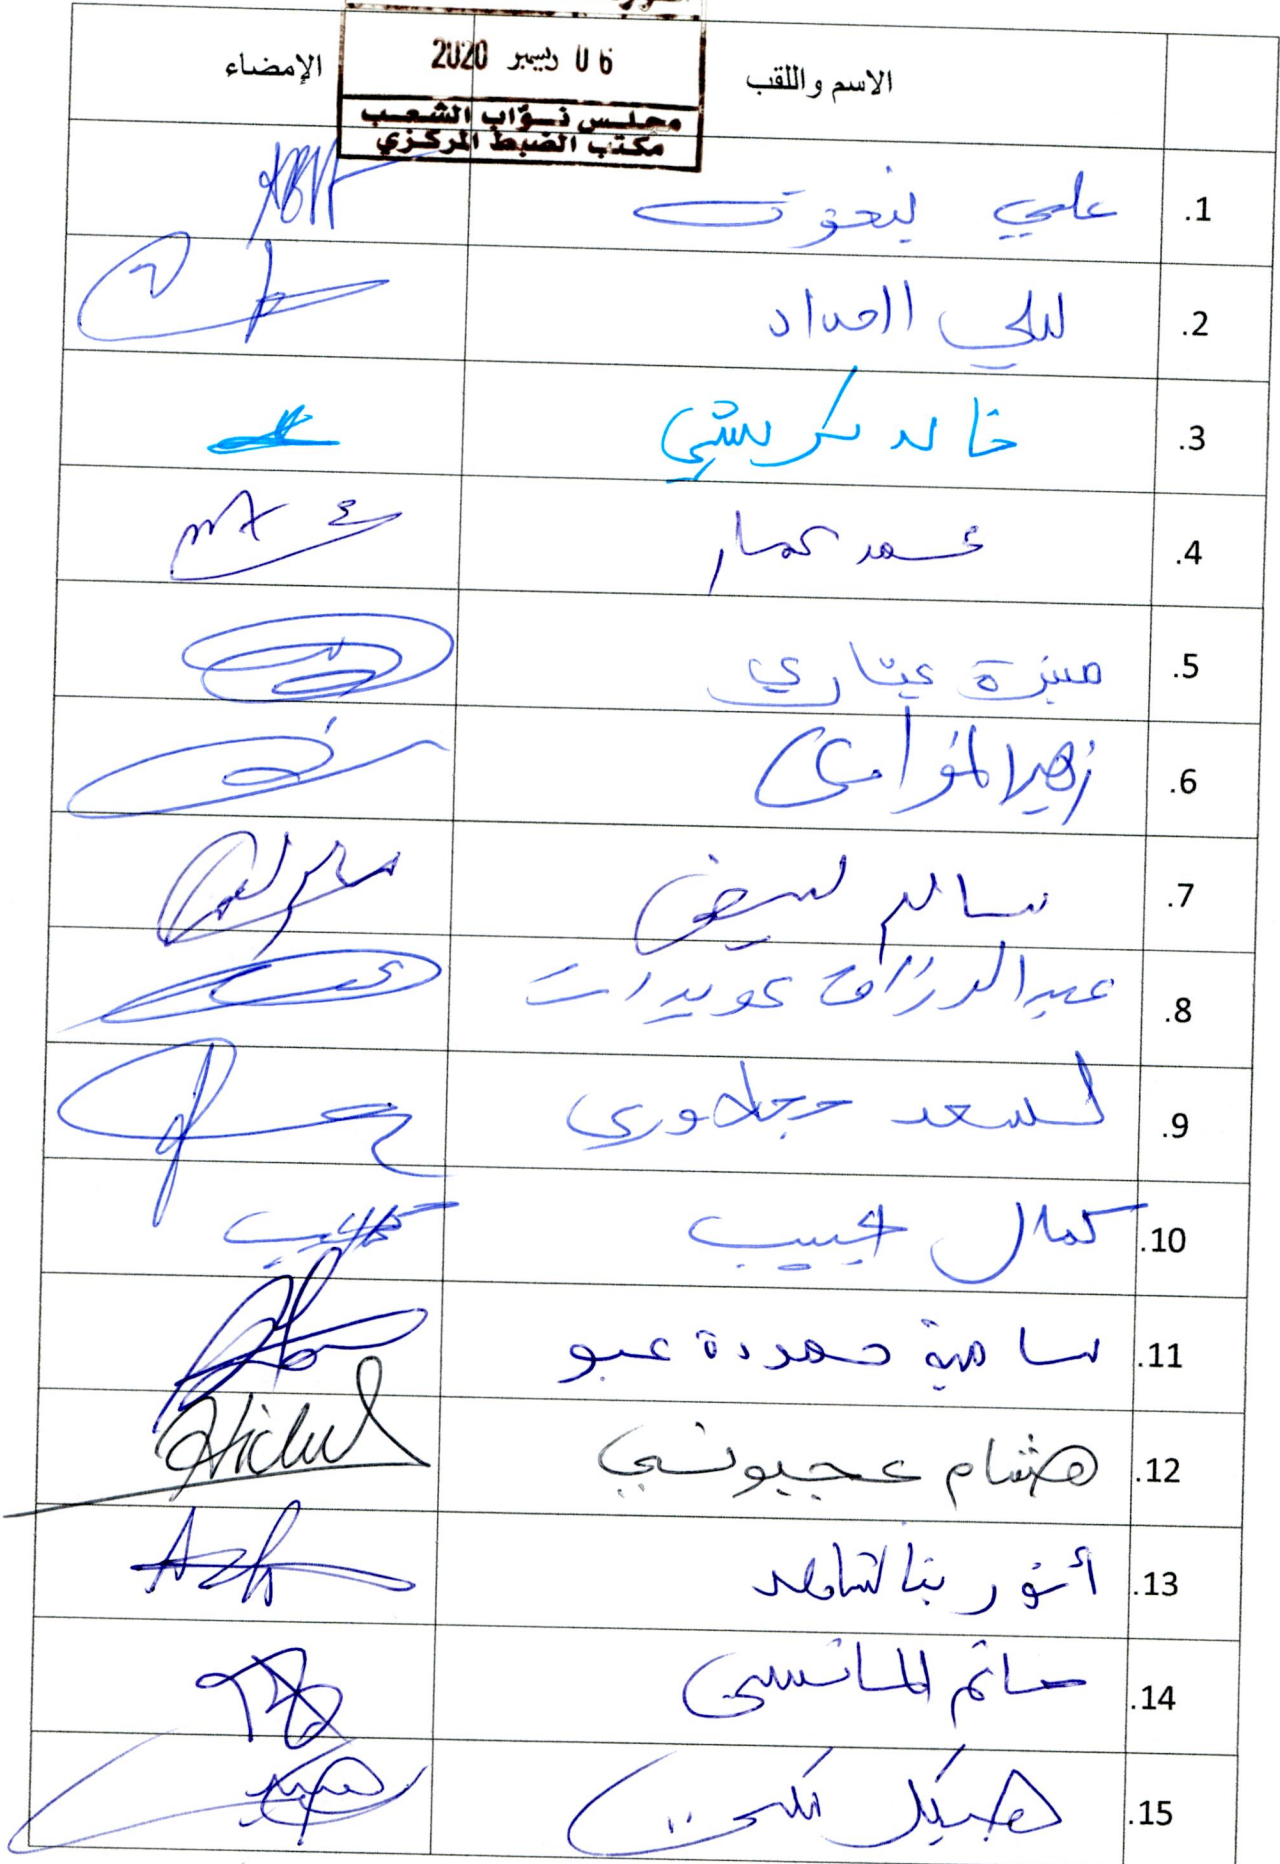 06 ديسمبر 2020
مجلس نوّاب الشعب
مكتب الضبط المركزي
الاسم واللقب
الإمضاء
1. علي
2. ليلى الحداد
3. خالد كريشي
4. محمد عمار
5. منيرة عياري
6. زهير المغزاوي
7. سالم لبيض
8. عبد الرزاق عويدات
9. لسعد حجلاوي
10. كمال حبيب
11. سامية حمودة عبو
12. هشام عجبوني
13. أنور بنالشاهد
14. حاتم المانسي
15. هيكل المكي